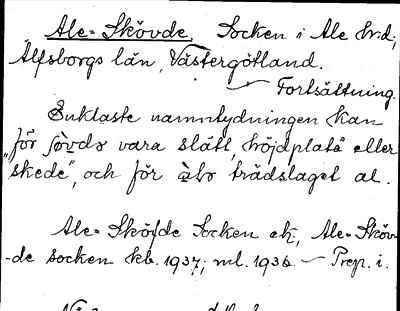 Ale-Skövde. Socken i Ale hrd;
Älfsborgs län, Västergötland.
— Fortsättning.
Enklaste namntydningen kan
för sövde vara slätt, höjdplatå eller
"skede", och för ale trädslaget al.
Ale-Sköfde Socken ek; Ale-Sköv-
-de socken kb. 1937; ml. 1936. — Prep. i.